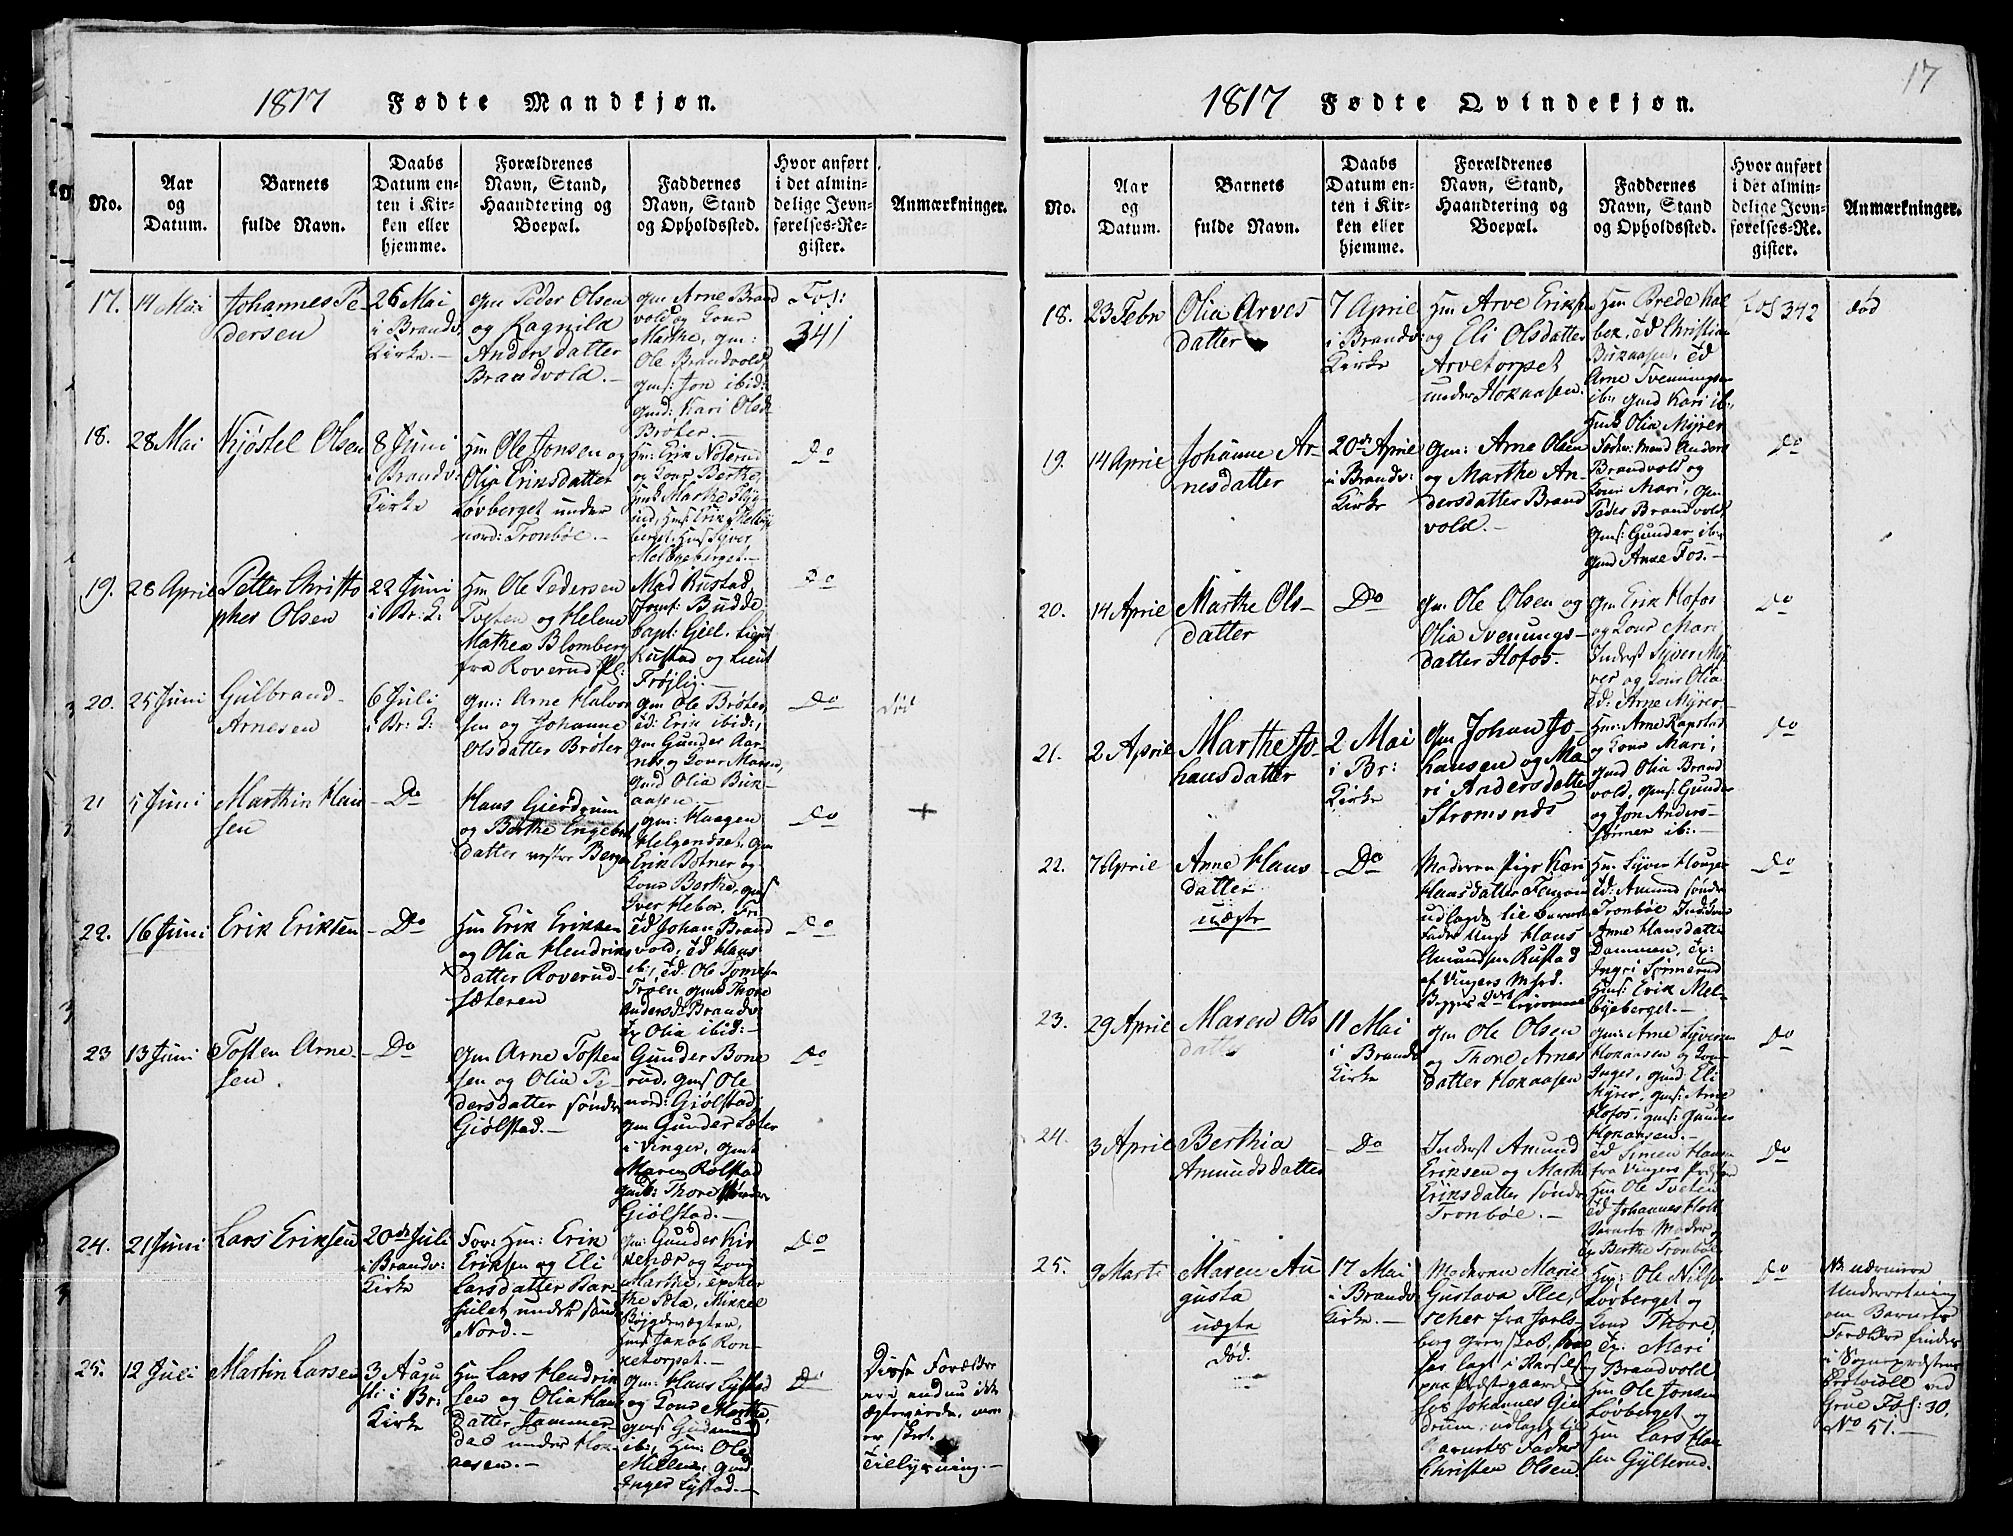 17
1817 Fødte Mandkjøn.
No.
Aar
og
Datum.
Barnets
fulde Navn.
Daabs
Datum en-
ten i Kir-
ken eller
hjemme.
Forældrenes
Navn, Stand,
Haandtering og
Boepæl.
Faddernes
Navn, Stand
og Opholdssted.
Hvor anført
i det almin-
delige Jevn-
førelses-Re-
gister.
Anmærkninger.
17.
14 Mai
Johannes Pe-
dersen
26 Mai
i Brandv:
Kirke.-
gm Peder Olsen
og Ragnild
Andersdatter
Brandvold.-
gm Arne Brand
vold og Kone
Marthe, gm:
Ole Brandvold,
gms: Jon ibid:
gmd: Kari Olsd
Brøter.-
Fol:
341
18.
28 Mai
Kjøstel Olsen
8 Juni
i Brandv:
Kirke
Hm Ole Jonsen og
Olia Eriksdatter
Løvberget under
nord: Tronbøe.-
Hm: Erik Noterud
og Kone Berthe,
Do
19.
28 April
Petter Christo
pher Olsen
22 Juni
i Br: K:
Hm Ole Pedersen
Tveten og Helene
Mathea Blomberg
fra Roverud Pl:
Mad Rustad
Jomf: Budde
Capt: Gjel, Lieut
Rustad og Lieut
Frøjlig.-
Do
20.
25 Juni
Gulbrand
Arnesen
6 Juli
i Br: K:
gm: Arne Halvor
sen og Johanne
Olsdatter Brøter
gm Ole Brøter,
Ed: Erik ibid:,
gm Gunder Aar-
nes og Kone Maren,
gmd Olia Birk-
aasen-
Do
død
21
5 Juni
Marthin Han
sen
- Do
Hans Gierdrum
og Berthe Engebret
datter vestre Berger
gm: Haagen
Helgesæt, gm
Erik Botner og
Kone Berthe, gms
Iver Hebor.
Do
+
22.
16 Juni
Erik Eriksen
- Do
Hm Erik Eriksen
og Olia Hendriks
datter Roverud-
sæteren
Ed Johan Brand
vold, Ed Hans
ib:, Ed: Ole
Trøen gmd Thore
Andersd: Brandv:
Ex Olia ibid:-
Do
23
13 Juni
Tosten Arne-
sen
- Do
gm Arne Tosten
sen og Olia Pe-
dersdatter sønder
Giølstad.-
Gunder Bone
rud, gms Ole
nord: Giølstad
gm Gunder Sæter
i Vinger, gmd
Maren Rolstad
gmd: Thore sønder
Giølstad.-
Do
24.
21 Juni
Lars Eriksen
20de Juli
i Brandv:
Kirke
For: Hm: Erik
Eriksen og Eli
Larsdatter
under sønd
Nord.-
gm: Gunder Kir
kenær og Kone
Marthe,
Do
25.
12 Juli
Martin Larsen
3 Augu
sti i Br:
Kirke
Hm Lars Hendrik
sen og Olia Hans
datter Jammer
dal under Hok-
aasen.-
gm: Hans Lystad
og Kone Marthe,
gms: Gudmund
ib:, Hm: Ole
Millen, gmd
Inger Lystad.-
Do
Disse Forældre
ere endnu ikke
ægteviede, men
er skeet
Tillysning.-
1817 Fødte Qvindekjøn.
No.
Aar
og
Datum.
Barnets
fulde Navn.
Daabs
Datum en-
ten i Kir-
ken eller
hjemme.
Forældrenes
Navn, Stand,
Haandtering og
Boepæl.
Faddernes
Navn, Stand
og Opholdssted.
Hvor anført
i det almin-
delige Jevn-
førelses-Re-
gister.
Anmærkninger.
18.
23 Febr
Olia Arves
datter
7 April
i Brandv:
Kirke
Hm Arve Eriks
og Eli Olsdatter
Arvetorpet
under Hokaasen.
Hm Brede Kol
bek, Ed Christian
Birkaasen, Ed
Arne Svenningsen
ib:, gmd Kari ib:,
Hmd Olia Myrer
Fol 342
død
19.
14 April
Johanne Ar-
nesdatter
20de April
i Brandv:
Kirke
gm: Arne Olsen
og Marthe An-
dersdatter Brand
vold.-
Anders
Brandvold og
Kone Mari, gm
Peder Brandvold,
gms: Gunder ib:,
gmd Anne Fos.-
Do
20.
14 April
Marthe Ols-
datter
Do
gm: Ole Olsen og
Olia Svenungs-
datter Hofos.
gm Erik Hofos
og Kone Mari
Inderst Syver My-
rer og Kone Olia
Ed: Arne Myrer.
Do
21.
2 April
Marthe Jo-
hansdatter
2 Mai
i Br:
Kirke
gm Johan Jo-
hansen og Ma-
ri Andersdatter
Stromsnes
Hm: Arne Rapstad
og Kone Mari,
gmd Olia Brand
vold, gms: Gunder
og Jon Anders-
sønner ib:.-
Do
22.
7 April
Anne Hans
datter
uægte
- Do
Moderen Pige Kari
Hansdatter
udlagde til Barnets
Fader Ungk Hans
Amundsen Rustad
af Vingers
Hm: Syver Hauger
Ed: Amund sønder
Tronbøe
Anne Hansdatter
Dammen, Ex:
Hms: Erik Mel-
byeberget.-
Do
23.
29 April
Maren Ols
datter
11 Mai
i Brandv
Kirke
gm Ole Olsen
og Thore Arnes
datter Hokaasen
gm: Arne Syversen
Hokaasen og Kone
Inger, gmd: Eli
Myrer, gms: Arne
Hofos, gms: Gunder
Hokaasen.-
Do
24.
3 April
Berthia
Amundsdatter
- Do
Inderst Amund
Eriksen og Marthe
Eriksdatter sønder
Tronbøe.-
Ed Simen Hansen
fra Vingers
Hm Ole Tveten
Ed Johannes
Barnets Moder
Ex Berthe Tronbøe
Do
25.
9 Marts
Maren Au
gusta
uægte
Død.
17 Mai
i Brandv
Kirke.-
Moderen Marie
Gustava Flei-
scher fra Jarls-
berg Grevskab,
lagt i Barsel
paa Præstegaarden
hos Johannes Gier
drum; udlagt til
Barnets Fader
Christen Olsen
Hm: Ole Nilsen
Løvberget og
Kone Thore
Ex: Mari
Brandvold
Hm Ole Jonsen
Løvberget og
Hm Lars Han
sen Gylterud.
Do
NB nærmere
Underretning
om Barnets
Forældre findes
i Sognepræstens
Protocoll ved
Grue Fol: 30.
No 51.-